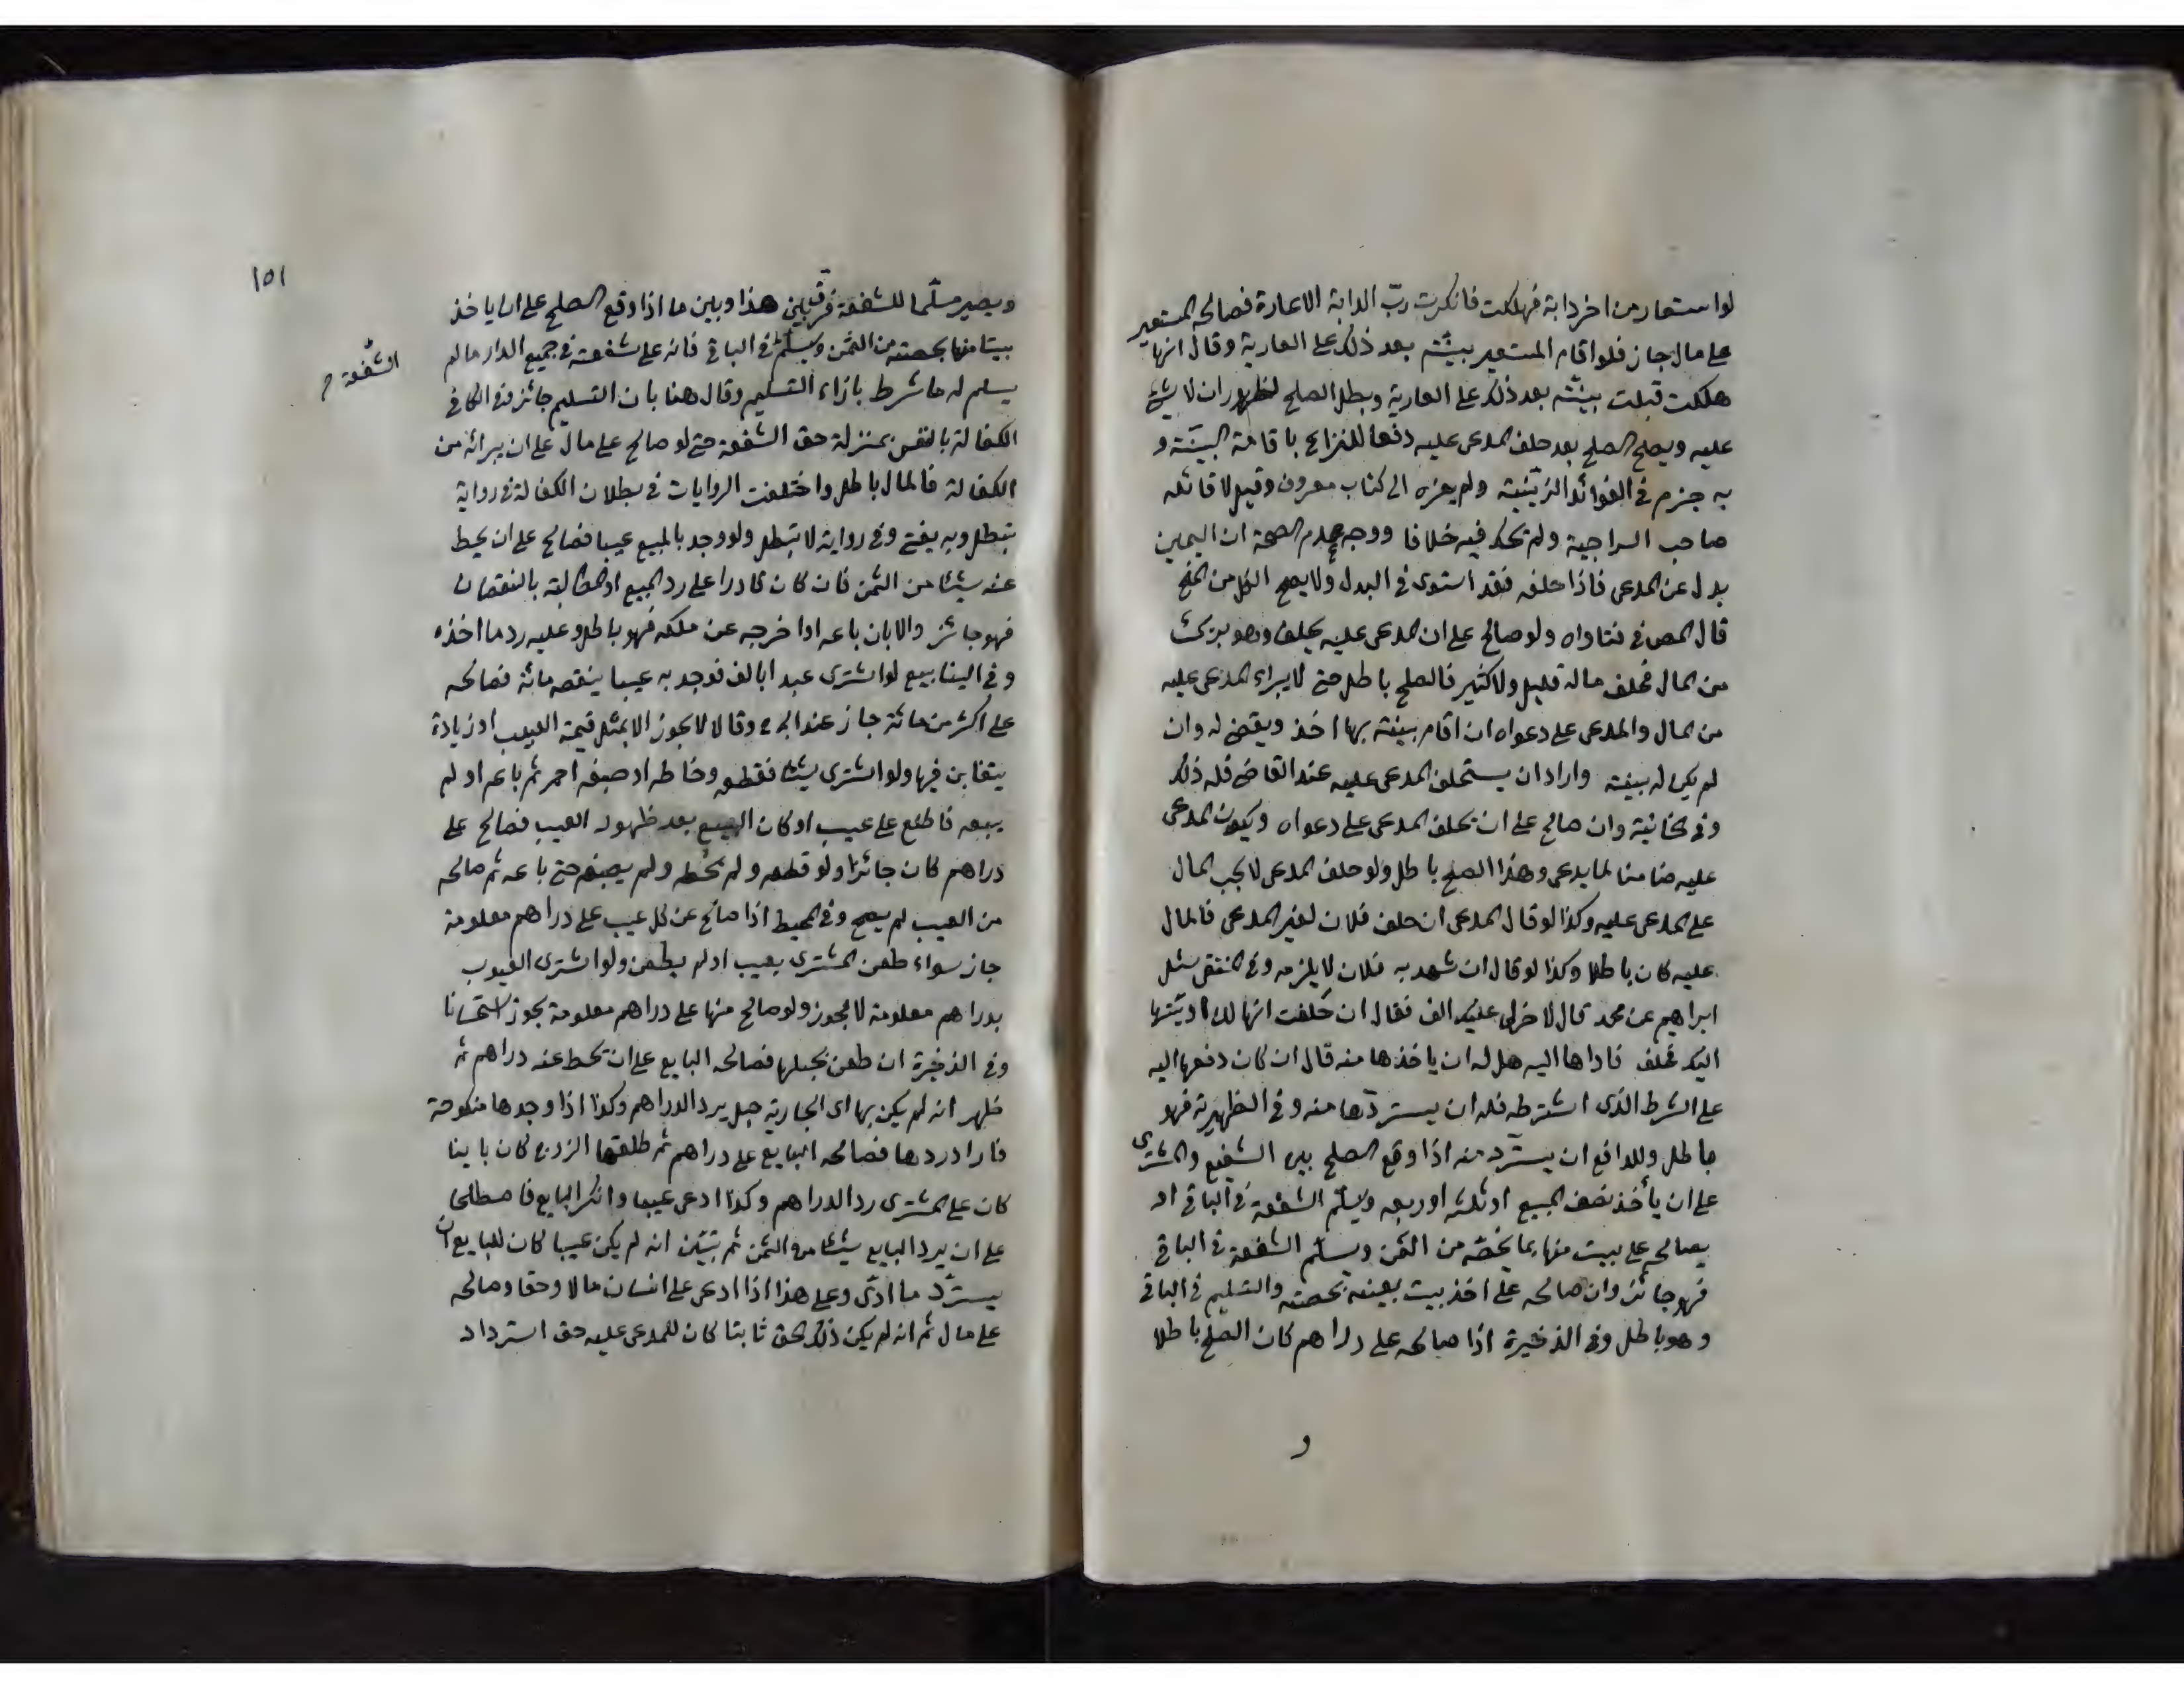 لو استعار من اخر دابة فهلكت فانكرت ربّ الدابة الاعارة فصالحه المستعير
على مال جاز فلو اقام المستعير بينته بعد ذلك على العارية وقال انها
هلكت قبلت بينته بعد ذلك على العارية وبطل الصلح لظهور ان لا شئ
عليه ويصلح الصلح بعد حلف المدعى عليه دفعا للنزاع باقامة البينة و
به جزم في الفوائد الزينية ولم يعزه الى كتاب معروف وقيل لا قائله
صاحب السراجية ولم يحك فيه خلافا ووجه عدم الصحة ان اليمين
بدل عن المدعى فاذا حلف فقد استوى في البدل ولا يصح
قال المص في فتاواه ولو صالح على ان المدعى عليه يحلف وهو برئ
من المال فحلف ماله قليل ولا كثير فالصلح باطل حتى لا يبراء المدعى عليه
من المال والمدعى على دعواه ان اقام بينة بها اخذ ويقضى له وان
لم يكن له بينة واراد ان يستحلف المدعى عليه عند القاضى فله ذلك
وفي الخانية وان صالح على ان يحلف المدعى على دعواه ويكون المدعى
عليه ضامنا لما يدعى وهذا الصلح باطل ولو حلف المدعى لا يجب المال
على المدعى عليه وكذا لو قال المدعى ان حلف فلان لغير المدعى فالمال
عليه كان باطلا وكذا لو قال ان شهد به فلان لا يلزمه وفي المنتقى سئل
ابراهيم عن محمد قال لاخر لى عليك الف فقال ان حلفت انها لك اديتها
اليك فحلف فاداها اليه هل له ان ياخذها منه قال ان كان دفعها اليه
على الشرط الذى اشترطه فله ان يستردّها منه وفي الظهيرية فهو
باطل وللدافع ان يستردّ منه اذا وقع الصلح بين الشفيع والمشترى
على ان يأخذ نصف المبيع او ثلثه او ربعه ويسلّم الشفعة في الباقي او
يصالحه على بيت منها بما يخصّه من الثمن ويسلّم الشفعة في الباقي
فهو جائز وان صالحه على اخذ بيت بعينه بحصته والتسليم في الباقي
وهو باطل وفي الذخيرة اذا صالحه على دراهم كان الصلح باطلا
و
١٥١
ويصير مسلّما للشفعة فرّق بين هذا وبين ما اذا وقع الصلح على ان ياخذ
بيتا منها بحصته من الثمن ويسلم في الباقي فانه على شفعته في جميع الدار ما لم
الشفعة
يسلم له ما شرط بازاء التسليم وقال هنا بان التسليم جائز وفي الكافي
الكفالة بالنفس بمنزلة حق الشفعة حتى لو صالح على مال على ان يبرائه من
الكفالة فالمال باطل واختلفت الروايات في بطلان الكفالة في رواية
تبطل وبه يفتى وفي رواية لا تبطل ولو وجد بالمبيع عيبا فصالح على ان يحط
عنه شيئا من الثمن فان كان قادرا على رد المبيع او المطالبة بالنقصان
فهو جائز والا بان باعه او اخرجه عن ملكه فهو باطل وعليه رد ما اخذه
وفي الينابيع لو اشترى عبدا بالف فوجد به عيبا ينقصه مائة فصالحه
على اكثر من مائة جاز عند ابى ح وقالا لا يجوز الا بمثل قيمة العيب او زيادة
يتغابن فيها ولو اشترى شيئا فقطعه وخاطه او صبغه احمر ثم باعه او لم
يبعه فاطلع على عيب او كان البيع بعد ظهور العيب فصالح على
دراهم كان جائزا ولو قطعه ولم يخطه ولم يصبغه حتى باعه ثم صالحه
من العيب لم يصح وفي المحيط اذا صالح عن كل عيب على دراهم معلومة
جاز سواء طعن المشترى بعيب او لم يطعن ولو اشترى العيوب
بدراهم معلومة لا يجوز ولو صالح منها على دراهم معلومة يجوز استحسانا
وفي الذخيرة ان طعن بحبلها فصالحه البايع على ان يحط عنه دراهم ثم
ظهر انه لم يكن بها اى الجارية حبل يرد الدراهم وكذا اذا وجدها منكوحة
فاراد ردها فصالحه البايع على دراهم ثم طلقها الزوج كان باينا
كان على المشترى رد الدراهم وكذا ادعى عيبا وانكر البايع فاصطلحا
على ان يرد البايع شيئا من الثمن ثم تبيّن انه لم يكن عيبا كان للبايع ان
يستردّ ما ادّى وعلى هذا اذا ادعى على انسان مالا وحقا وصالحه
على مال ثم انه لم يكن ذلك الحق ثابتا كان للمدعى عليه حق استرداد